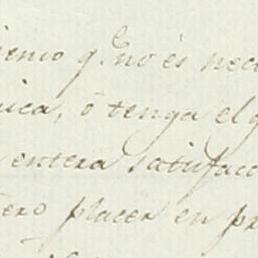 ienio q.e no és nece
uica, ó tenga el q
entera satisfacc
ero placer en pr